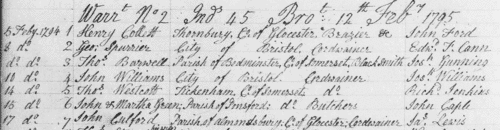 Warrt. No. 2 Ind 45 Brot. 12th Feby 1795
5 Feby. 1794 1 Henry Collett Thornbury, C. of Glocester Brazier & John Ford
8 do. 2 Geo: Spurrier City of Bristol Cordwainer Edwd. T. Cann
do do. 3 Thos. Barwell Parish of Bedminster, C. of Somerset, Black Smith Jos: Gunning
10 do. 4 John Williams City of Bristol Cordwainer Jos: Williams
14 do 5 Thos. Westcott Tickenham, C. of Somerset do Richd. Jenkins
16 do 6 John & Martha Green, Parish of Butchers John Caple
17 do 7 John Parish of Almondsbury C. of Glocester Cordwainer Jas. Lewis